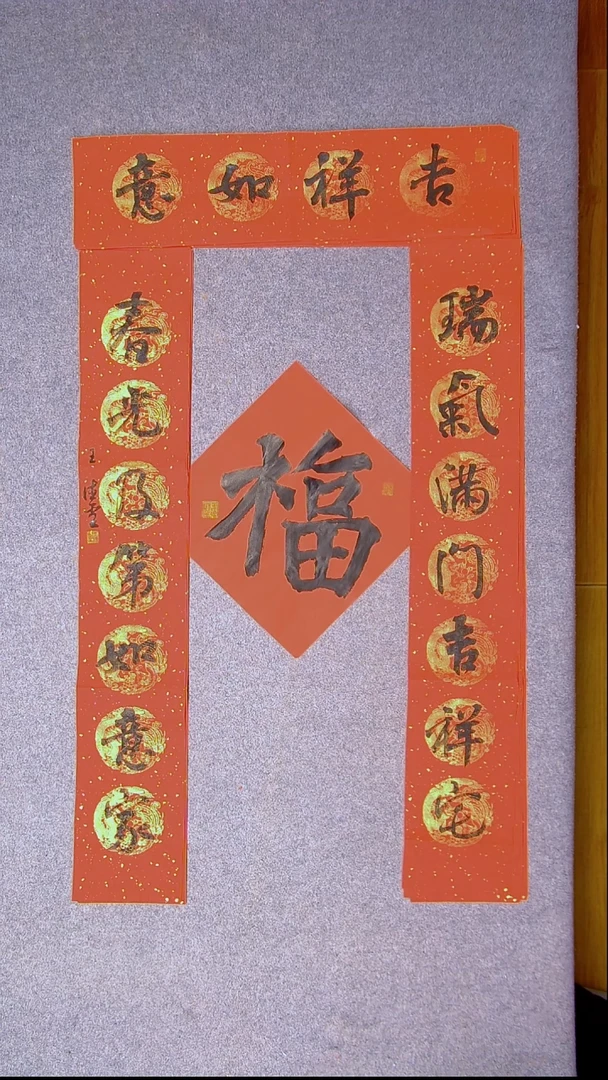 吉祥如意
瑞氣满门吉祥宅
福
春光及第如意家